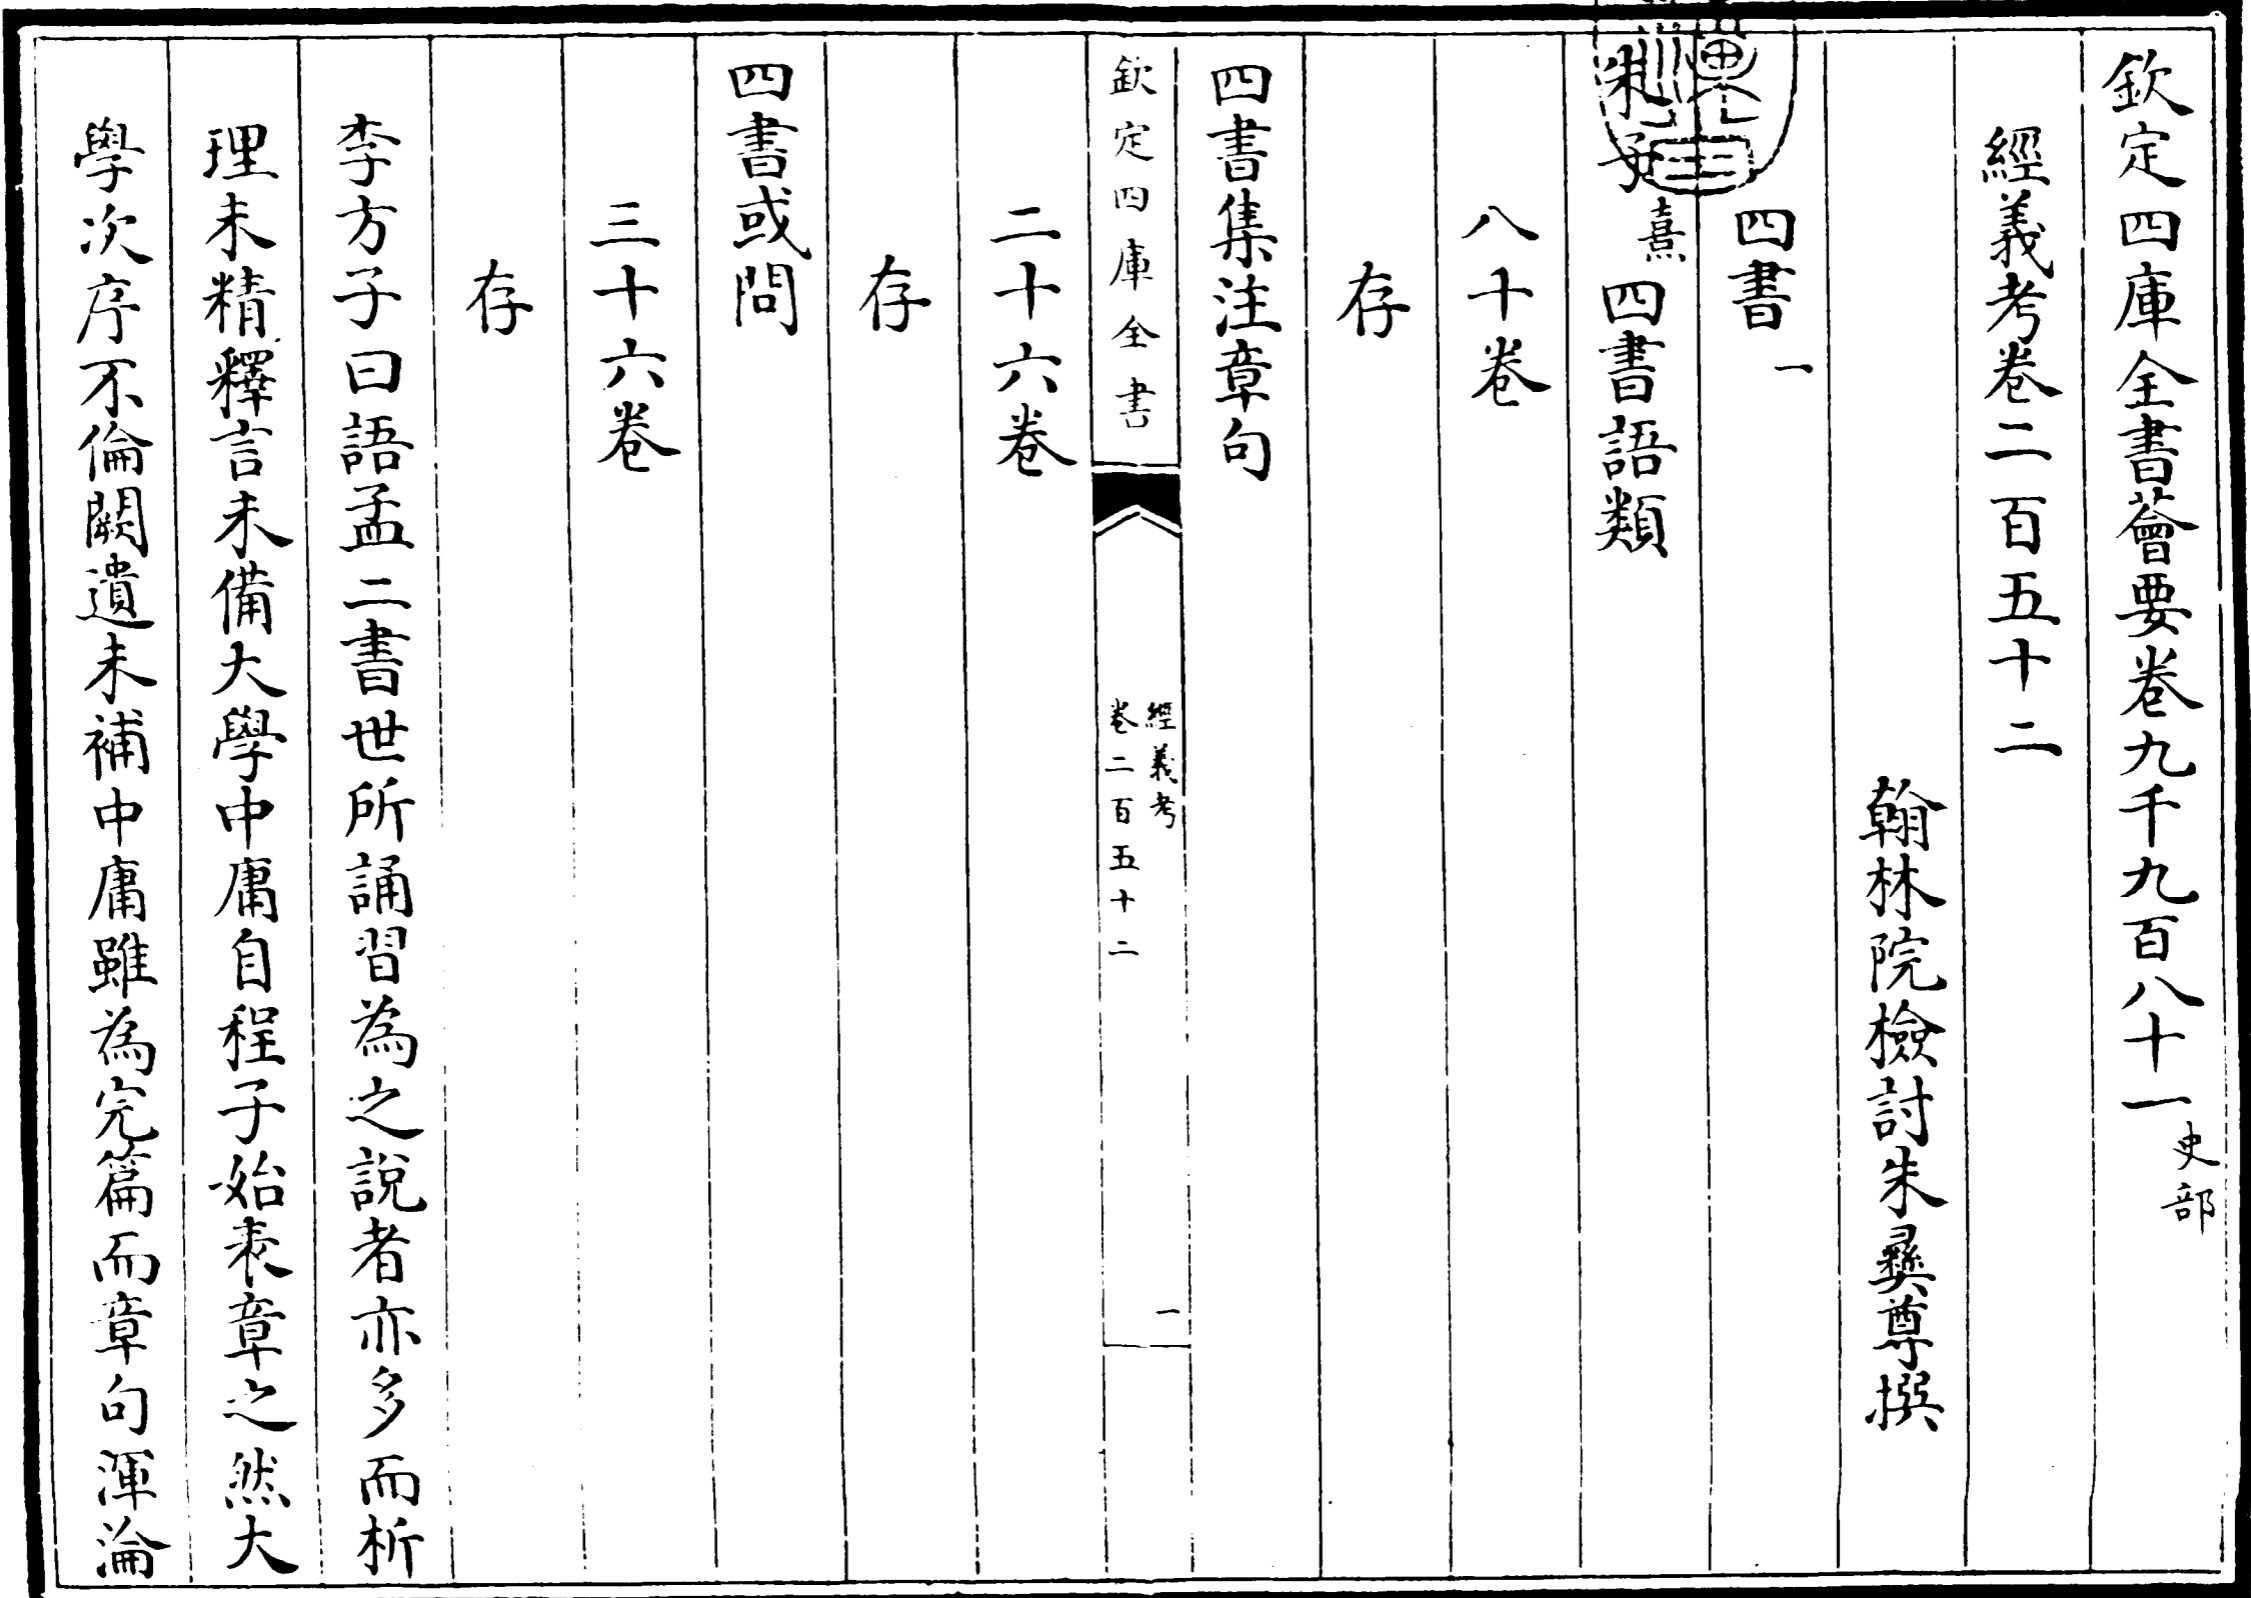 欽定四庫全書薈要卷九千九百八十一史部
經義考卷二百五十二
翰林院檢討朱彝尊撰
四書一
朱子熹四書語類
八十卷
存
四書集注章句
欽定四庫全書
經義考
卷二百五十二
一
二十六卷
存
四書或問
三十六卷
存
李方子曰語孟二書世所誦習為之說者亦多而析
理未精釋言未備大學中庸自程子始表章之然大
學次序不倫闕遺未補中庸雖為完篇而章句渾淪